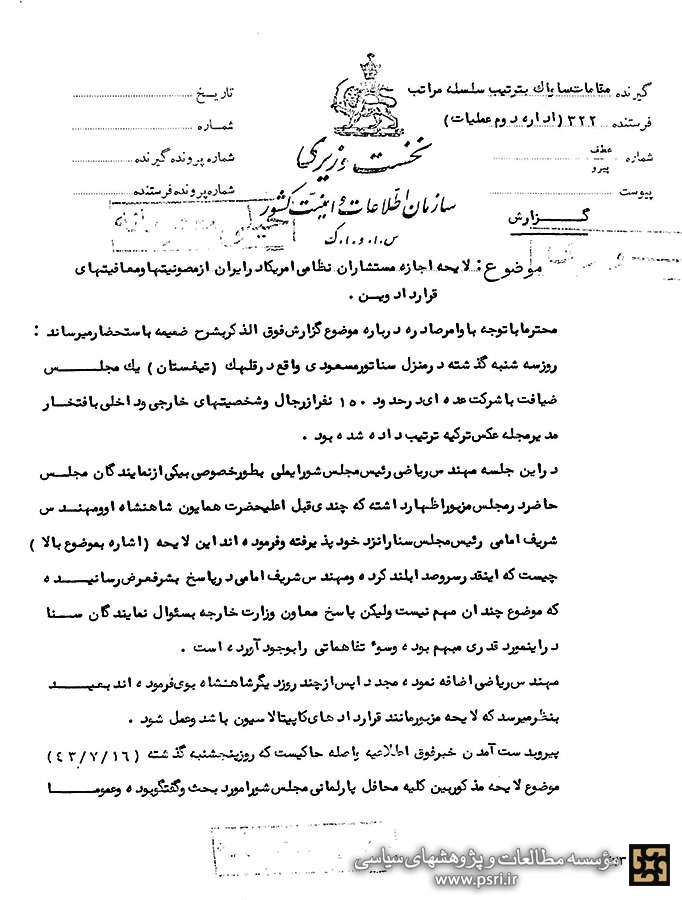 گیرنده مقامات ساواک بترتیب سلسله مراتب
فرستنده ۳۲۲ (اداره دوم عملیات)
شماره عطف
پیرو
پیوست
گزارش
نخست وزیری
سازمان اطلاعات و امنیت کشور
س.ا.و.ا.ک
تاریخ
شماره
شماره پرونده گیرنده
شماره پرونده فرستنده
موضوع: لایحه اجازه مستشاران نظامی امریکا در ایران از مصونیتها و معافیتهای
قرارداد وین .
محترما با توجه باوامر صادره درباره موضوع گزارش فوق الذکر بشرح ضمیمه باستحضار میرساند :
روز سه شنبه گذشته در منزل سناتور مسعودی واقع در قلهک (تیغستان) یک مجلس
ضیافت با شرکت عده ای در حدود ۱۵۰ نفر از رجال و شخصیتهای خارجی و داخلی بافتخار
مدیر مجله عکس ترکیه ترتیب داده شده بود .
در این جلسه مهندس ریاضی رئیس مجلس شورایملی بطور خصوصی بیکی از نمایندگان مجلس
حاضر در مجلس مزبور اظهار داشته که چندی قبل اعلیحضرت همایون شاهنشاه او و مهندس
شریف امامی رئیس مجلس سنا را نزد خود پذیرفته و فرموده اند این لایحه (اشاره بموضوع بالا)
چیست که اینقدر سر و صدا بلند کرده و مهندس شریف امامی در پاسخ بشرفعرض رسانیده
که موضوع چندان مهم نیست ولیکن پاسخ معاون وزارت خارجه بسئوال نمایندگان سنا
در اینمورد قدری مبهم بوده و سوء تفاهماتی را بوجود آورده است .
مهندس ریاضی اضافه نموده مجددا پس از چند روز دیگر شاهنشاه بوی فرموده اند بعید
بنظر میرسد که لایحه مزبور مانند قراردادهای کاپیتالاسیون باشد و عمل شود .
پیرو بدست آمدن خبر فوق اطلاعیه واصله حاکیست که روز پنجشنبه گذشته (۴۳/۷/۱۶)
موضوع لایحه مذکور بین کلیه محافل پارلمانی مجلس شورا مورد بحث و گفتگو بوده و عموما
مؤسسه مطالعات و پژوهشهای سیاسی
www.psri.ir